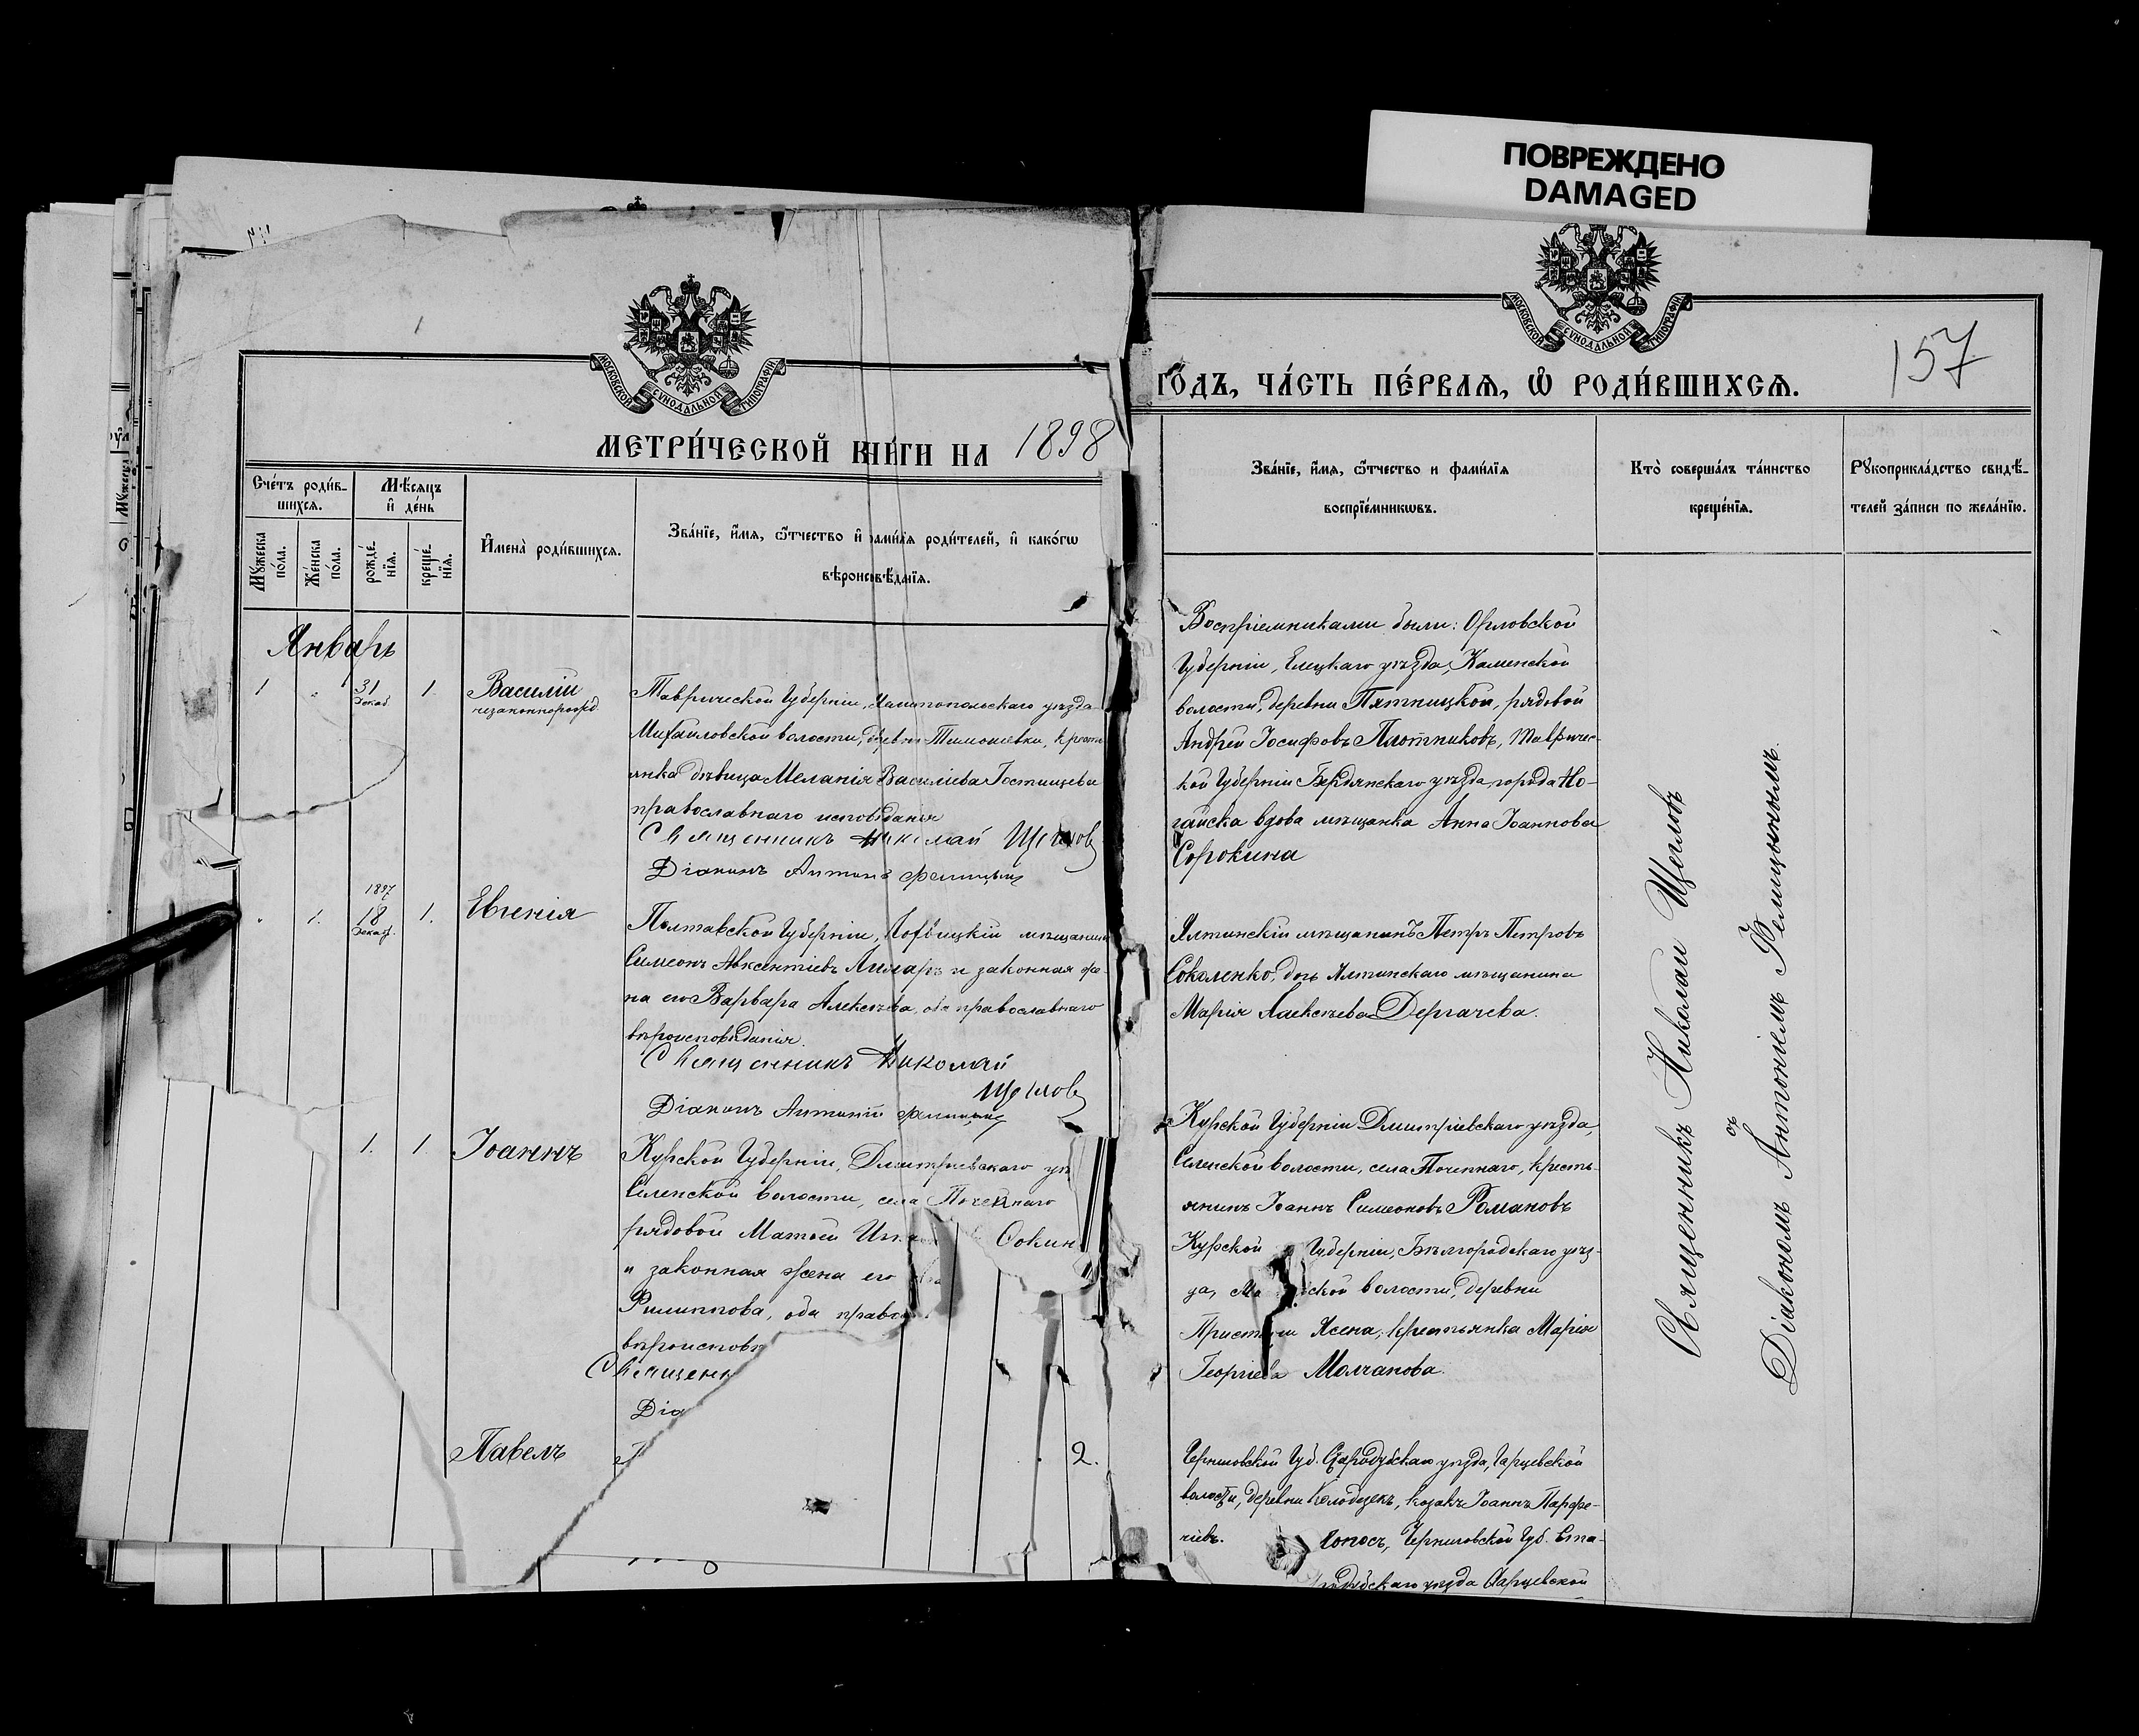 ПОВРЕЖДЕНО
DAMAGED
МОСКОВСКОЙ СѴНОДАЛЬНОЙ ТИПОГРАФІИ
МОСКОВСКОЙ СѴНОДАЛЬНОЙ ТИПОГРАФІИ
157
МЕТРИ́ЧЕСКОЙ КНИ́ГИ НА 1898
ГО́ДЪ, ЧА́СТЬ ПЕ́РВАЯ, Ѡ РОДИ́ВШИХСЯ.
Сче́тъ роди́в-
шихся.
Мꙋ́жеска
по́ла.
Же́нска
по́ла.
Мѣ́сяцъ
и҆ де́нь
рожде́-
нїя.
креще́-
нїя.
И҆мена̀ роди́вшихся.
Зва́нїе, и҆́мя, ѻ҆́тчество и҆ фами́лїя роди́телей, и҆ како́гѡ
вѣроисповѣ́данїя.
Зва́нїе, и҆́мя, ѻ҆́тчество и фами́лїя
воспрїе́мникѡвъ.
Кто̀ соверша́лъ та́инство
креще́нїя.
Рꙋкоприкла́дство свидѣ́-
телей за́писи по жела́нїю.
Январь
1 " 31 Декаб. 1
Василій
незаконнорожд.
Таврической Губерніи, Мелитопольскаго уѣзда
Михайловской волости, деревни Тимошевки, кресть
янка дѣвица Меланія Василіева Гостищева
православнаго исповѣданія
Священникъ Николай Щегловъ
Діаконъ Антоній Фелицынъ
Воспріемниками были: Орловской
Губерніи, Елецкаго уѣзда, Каменской
волости, деревни Пятницкой, рядовой
Андрей Іосифовъ Плотниковъ, Тавричес-
кой Губерніи Бердянскаго уѣзда, города Но-
гайска вдова мѣщанка Анна Іоаннова
Сорокина
" 1. 1897 18 Декаб. 1.
Евгенія
Полтавской Губерніи, Лохвицкій мѣщанинъ
Симеонъ Авксентіевъ и законная же-
на его Варвара Алексѣева, оба православнаго
вѣроисповѣданія.
Священникъ Николай
Щегловъ
Діаконъ Антоній Фелицынъ
Ялтинскій мѣщанинъ Петръ Петровъ
Соколенко, дочь Ялтинскаго мѣщанина
Марія Алексѣева Дергачева.
1. 1
Іоаннъ
Курской Губерніи, Дмитріевскаго уѣ
Селенской волости, села Почепнаго
рядовой Матѳей Сокин
и законная жена его
Филиппова, оба право
вѣроисповѣ
Священн
Діа
Курской Губерніи Дмитріевскаго уѣзда,
Селенской волости, села Почепнаго, кресть-
янинъ Іоаннъ Симеоновъ Романовъ
Курской Губерніи, Бѣлгородскаго уѣз-
да, ской волости, деревни
Ясена, крестьянка Марія
Георгіева Молчанова.
Павелъ
2.
Черниговской Губ. Стародубскаго уѣзда, Гарцевской
волости, деревни Колодезекъ, козакъ Іоаннъ Парфе-
ніевъ. Черниговской Губ. Ста-
родубскаго уѣзда Гарцевской
Священникъ Николай Щегловъ
съ
Діакономъ Антоніемъ Фелицынымъ.